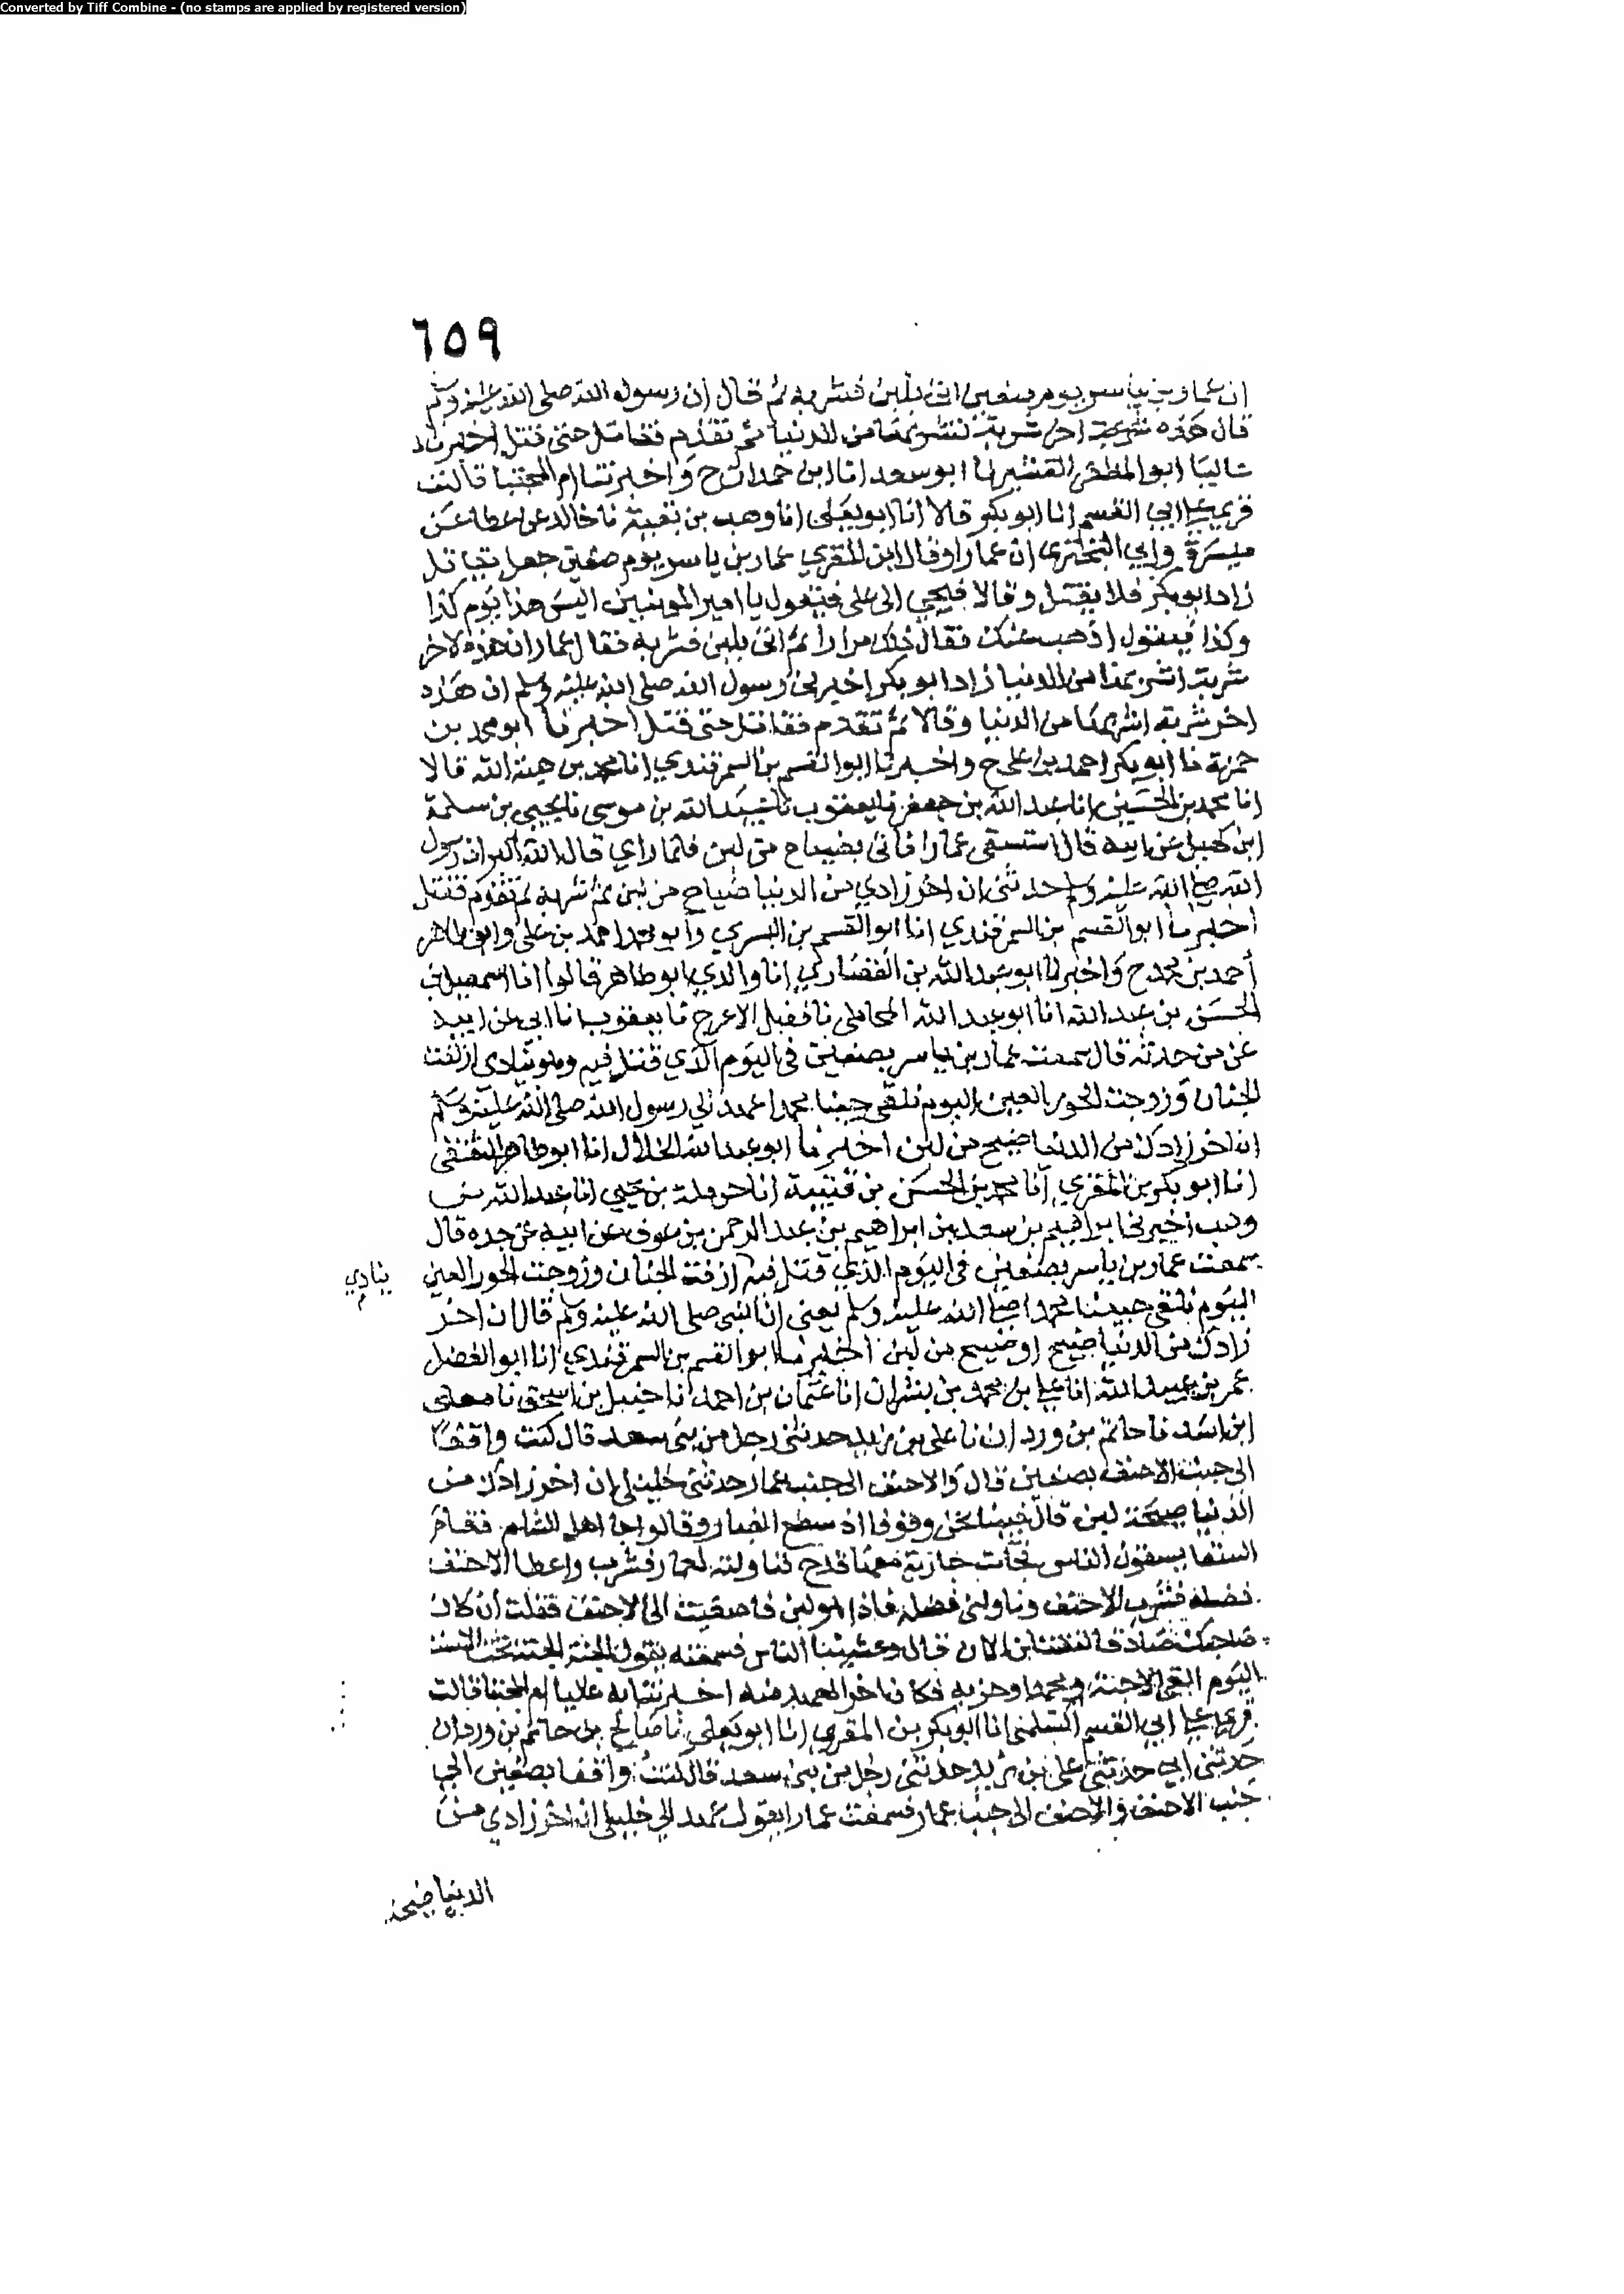 Converted by Tiff Combine - (no stamps are applied by registered version)
٦٥٩
ان عمار بن ياسر يوم بصفين اتى بلبن فشربه ثم قال ان رسول الله صلى الله عليه وسلم
قال هذه شربة اخر شربة نشربها من الدنيا ثم تقدم فقاتل حتى قتل اخبرناه
عاليا ابو المظفر القشيري انا ابو سعد انا ابن حمدان ح واخبرتنا ام المجتبا قالت
قرى على ابي القسم انا ابو بكر قالا انا ابو يعلى انا وهب بن بقية نا خالد عن عطا عن
ميسرة وابي البختري ان عمارا وقال ابن المقري عمار بن ياسر يوم صفين جعل يقاتل
زاد ابو بكر فلا يقتل وقالا فيجي الى على فيقول يا امير المومنين اليس هذا يوم كذا
وكذا فيقول اذهب عنك فقال ذلك مرارا ثم اتى بلبن فشربه فقال عمار ان هذه لاخر
شربة اشربها من الدنيا زاد ابو بكر اخبرني رسول الله صلى الله عليه وسلم ان هذه
اخر شربة اشربها من الدنيا وقالا ثم تقدم فقاتل حتى قتل اخبرنا ابو محمد بن
حمزة نا ابو بكر احمد بن علي ح واخبرنا ابو القسم بن السمرقندي انا محمد بن هبة الله قالا
انا محمد بن الحسين انا عبد الله بن جعفر نا يعقوب نا عبيد الله بن موسى نا يحيى بن سلمة
ابن كهيل عن ابيه قال استسقى عمارا فاتى بضياح من لبن فلما راي قال الله اكبر ان رسول
الله صلى الله عليه وسلم حدثني ان اخر زادي من الدنيا ضياح من لبن ثم شربه ثم تقوم فقتل
اخبرنا ابو القسم بن السمرقندي انا ابو القسم بن البسري وابو محمد احمد بن على وابو طاهر
احمد بن محمد ح واخبرنا ابو عبد الله بن القصاري انا والدي ابو طاهر قالوا انا اسمعيل بن
الحسن بن عبد الله انا ابو عبد الله المحاملي نا فضل الاعرج نا يعقوب نا ابي عن ابيه
عن من حدثه قال سمعت عمار بن ياسر بصفين في اليوم الذي قتل فيه وهو ينادي ازلفت
الجنان وزوجت الحور العين اليوم نلقى حبيبنا محمدا عهد الي رسول الله صلى الله عليه وسلم
ان اخر زادك من الدنيا ضيح من لبن اخبرنا ابو عبد الله الخلال انا ابو طاهر الثقفي
انا ابو بكر بن المقري انا محمد بن الحسن بن قتيبة انا حرملة بن يحيى انا عبد الله بن
وهب اخبرني ابراهيم بن سعد بن ابراهيم بن عبد الرحمن بن عوف عن ابيه عن جده قال
سمعت عمار بن ياسر بصفين في اليوم الذي قتل فيه ازفت الجنان وزوجت الحور العين
ينادي
اليوم نلقى حبيبنا محمدا صلى الله عليه وسلم يعني ان النبى صلى الله عليه وسلم قال ان اخر
زادك من الدنيا ضيح او ضييح من لبن اخبرنا ابو القسم بن السمرقندي انا ابو الفضل
عمر بن عبيد الله انا علي بن محمد بن بشران انا عثمان بن احمد انا حنبل بن اسحق نا معلى
ابن اسد نا حاتم بن وردان نا على بن يزيد حدثنى رجل من بنى سعد قال كنت واقفا
الى جنب الاحنف بصفين قال والاحنف الى جنب عمار حدثنى خليلى ان اخر زادك من
الدنيا ضيحة لبن قال فبينا نحن وقوفا اذ سطع الغبار وقالوا جا اهل الشام فقام
السقا يسقون الناس فجات جارية معها قدح فناولته لعمار فشرب واعطا الاحنف
فضله فشرب الاحنف وناولنى فضله فاذا هو لبن فاصغيت الى الاحنف فقلت ان كان
صاحبك صادقا الان قال وغشينا الناس فسمعته يقول الجنة الجنة تحت الاسنة
اليوم القى الاحبة محمدا وحزبه فكان اخر العهد منه اخبرتنا به عاليا ام المجتبا قالت
قرى على ابي القسم السلمى انا ابو بكر بن المقري انا ابو يعلى نا صالح بن حاتم بن وردان
حدثنى ابي حدثنى على بن يزيد حدثنى رجل من بنى سعد قال كنت واقفا بصفين الى
جنب الاحنف والاحنف الى جنب عمار فسمعت عمارا يقول عهد الي خليلى ان اخر زادي من
الدنيا ضيحة